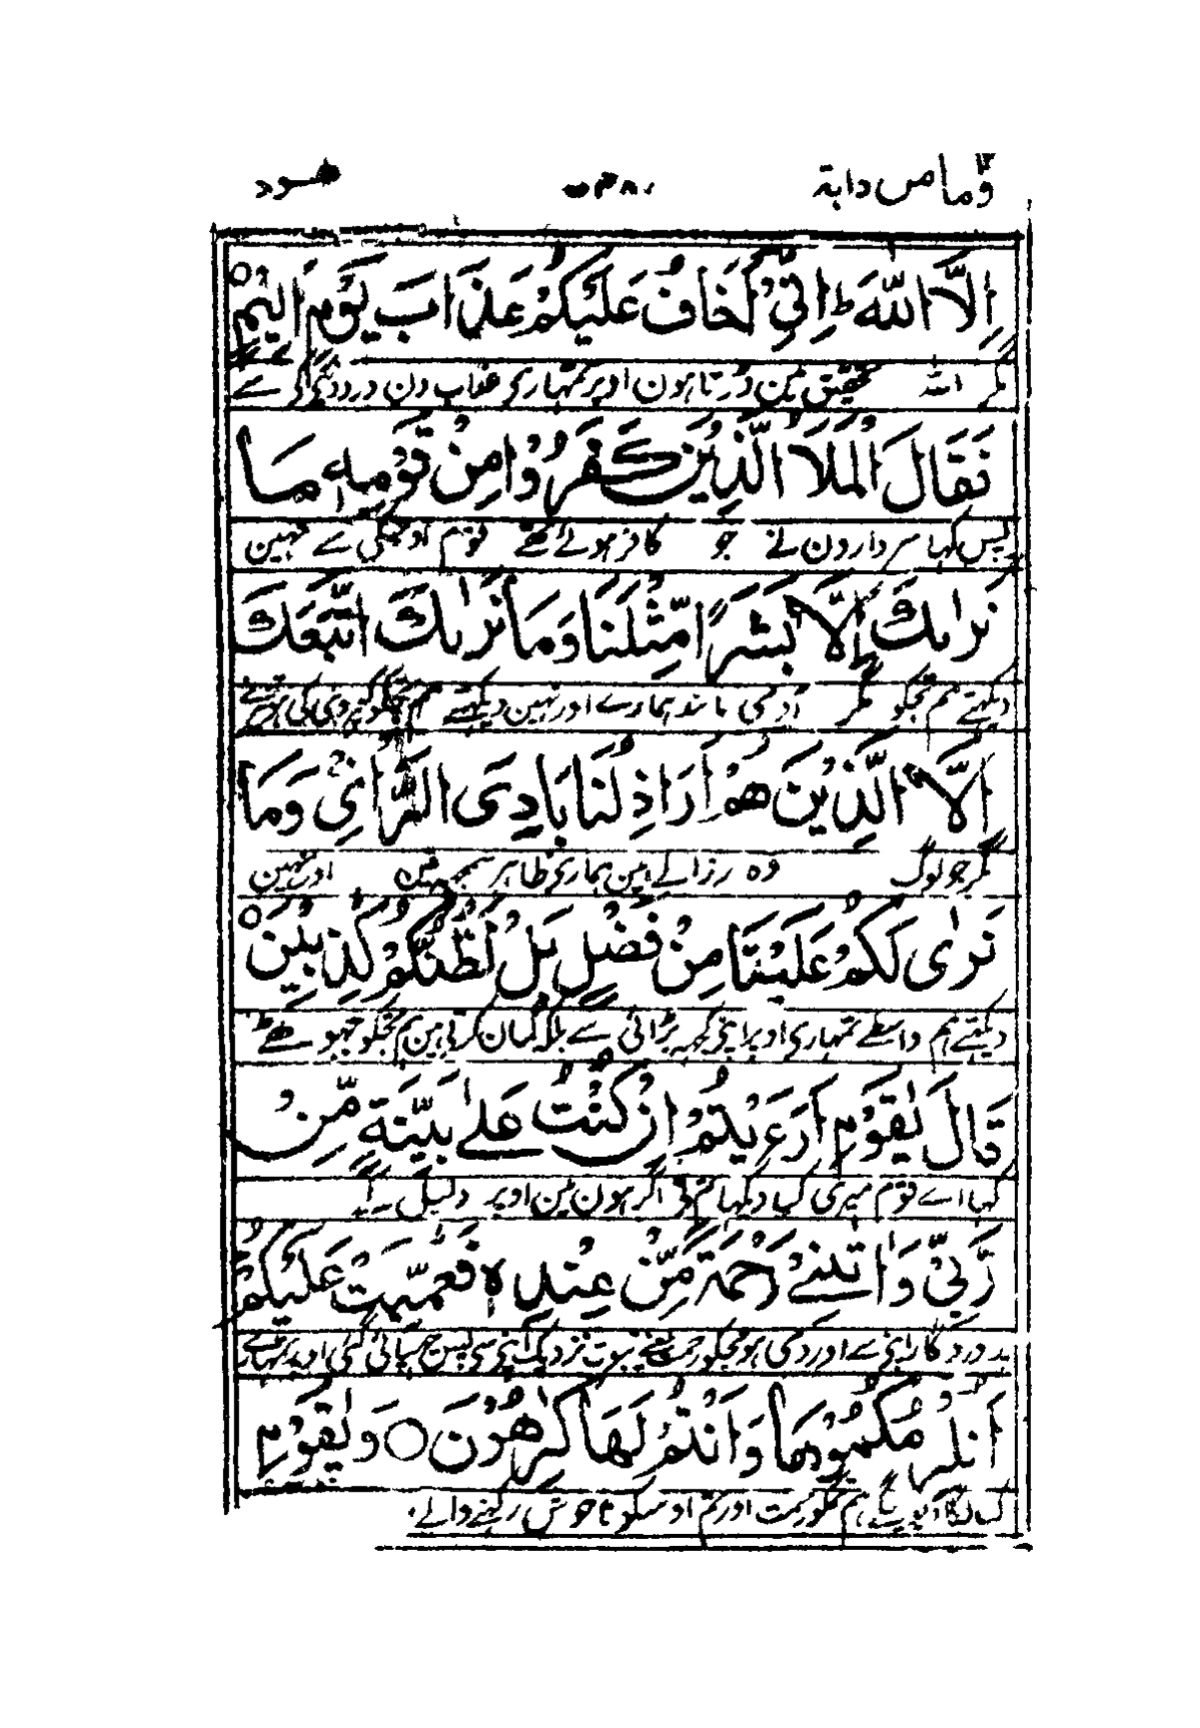 وما من دابة ۳۸۰ هود
اِلَّا اللّٰهَ ط اِنِّیْ اَخَافُ عَلَیْكُمْ عَذَابَ یَوْمٍ اَلِیْمٍ ○
مگر اللہ تحقیق مین ڈرتا ہون اوپر تمہاری عذاب دن درد دینے والے سے
فَقَالَ الْمَلَاُ الَّذِیْنَ كَفَرُوْا مِنْ قَوْمِهٖ مَا
پس کہا سردارون نے جو کافر ہوئے تھے قوم اوسکی سے نہین
نَرٰىكَ اِلَّا بَشَرًا مِّثْلَنَا وَمَا نَرٰىكَ اتَّبَعَكَ
دیکہتے ہم تجکو مگر آدمی مانند ہمارے اور نہین دیکہتے ہم تجکو کہ پیروی کی ہو تیرے
اِلَّا الَّذِیْنَ هُمْ اَرَاذِلُنَا بَادِیَ الرَّاْیِ وَمَا
مگر جو لوگ وہ رزالے ہین ہماری ظاہر سمجہ مین اور نہین
نَرٰی لَكُمْ عَلَیْنَا مِنْ فَضْلٍ بَلْ نَظُنُّكُمْ كٰذِبِیْنَ ○
دیکہتے ہم واسطے تمہاری اوپر اپنی کچہہ بڑائی سے بلکہ گمان کرتے ہین ہم تمکو جہوٹے
قَالَ یٰقَوْمِ اَرَءَیْتُمْ اِنْ كُنْتُ عَلٰی بَیِّنَةٍ مِّنْ
کہا اے قوم میری کیا دیکہا تم نے اگر ہون مین اوپر دلیل کے
رَّبِّیْ وَاٰتٰىنِیْ رَحْمَةً مِّنْ عِنْدِهٖ فَعُمِّیَتْ عَلَیْكُمْ
پروردگار اپنے سے اور دی ہو مجکو رحمت یعنے نبوت نزدیک اپنے سے پس چہپائی گئی اوپر تمہارے
اَنُلْزِمُكُمُوْهَا وَاَنْتُمْ لَهَا كٰرِهُوْنَ ○ وَیٰقَوْمِ
کیا لگا دیوینگے ہم تمکو رحمت اور تم اوسکو ناخوش رکہنے والے